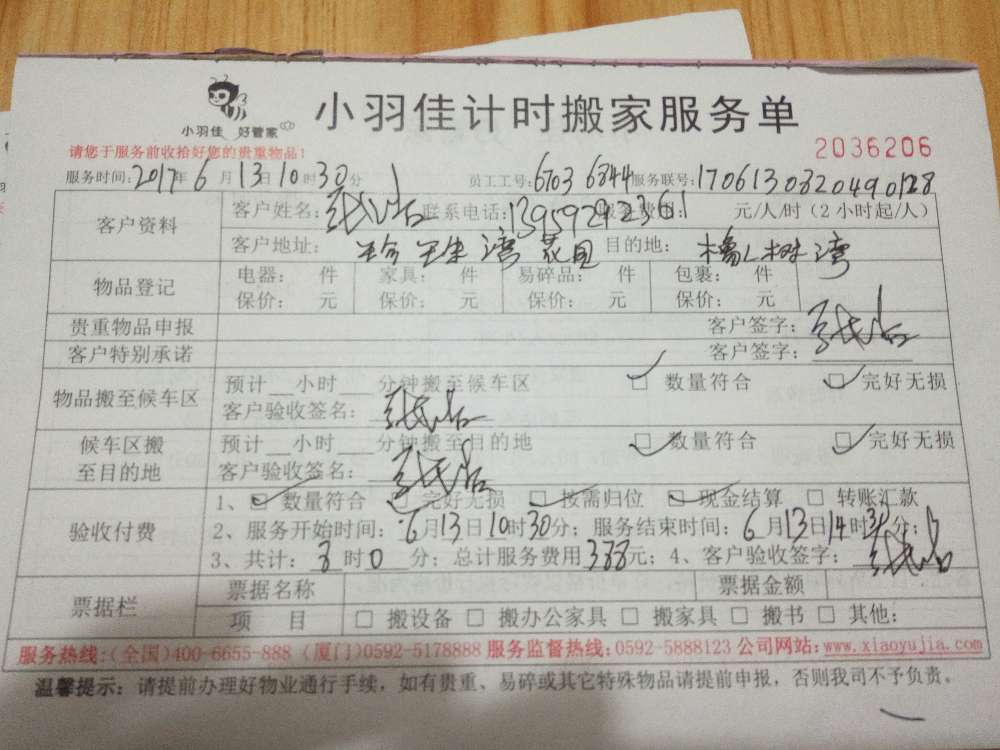 小羽佳 好管家
小羽佳计时搬家服务单
请您于服务前收拾好您的贵重物品!
2036206
服务时间:2017年6月13日10时30分 员工工号:6703 6844 服务联号:1706130320490128
客户资料 客户姓名: 联系电话: 元/人/时(2小时起/人)
客户地址: 湾花园 目的地: 橡树湾
物品登记 电器: 件 家具: 件 易碎品: 件 包裹: 件
保价: 元 保价: 元 保价: 元 保价: 元
贵重物品申报 客户签字:
客户特别承诺 客户签字:
物品搬至候车区 预计__小时__分钟搬至候车区 □ 数量符合 □ 完好无损
客户验收签名:
候车区搬至目的地 预计__小时__分钟搬至目的地 □ 数量符合 □ 完好无损
客户验收签名:
验收付费 1、□ 数量符合 □ 完好无损 □ 按需归位 □ 现金结算 □ 转账汇款
2、服务开始时间:6月13日10时30分;服务结束时间:6月13日14时
3、共计:8时0分;总计服务费用388元;4、客户验收签字:
票据栏 票据名称 票据金额
项 目 □ 搬设备 □ 搬办公家具 □ 搬家具 □ 搬书 □ 其他:
服务热线:(全国)400-6655-888 (厦门)0592-5178888 服务监督热线:0592-5888123 公司网站:www.xiaoyujia.com
温馨提示:请提前办理好物业通行手续,如有贵重、易碎或其它特殊物品请提前申报,否则我司不予负责。